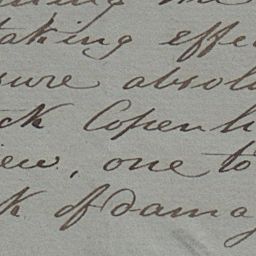 taking effe
sure absol
ck Copenh
iew, one to
k of dama